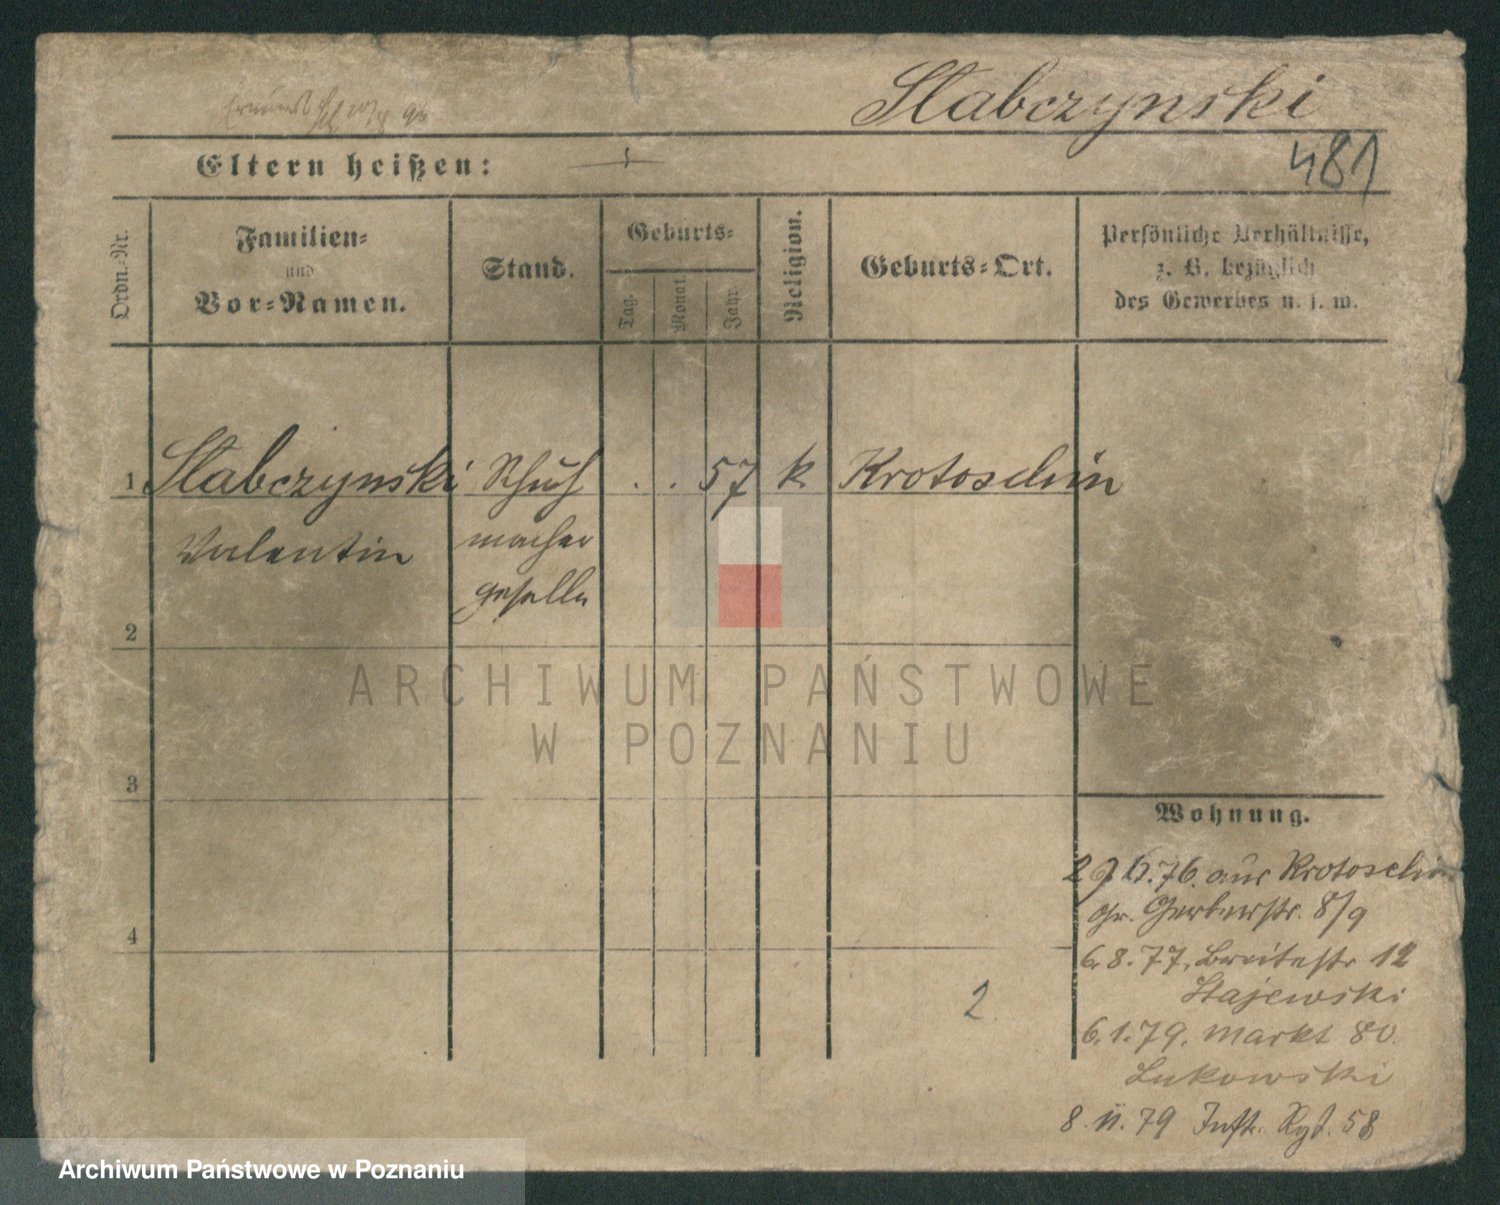 Slabczynski
481
Eltern heißen:
Ordn.-Nr.
Familien-
und
Vor-Namen.
Stand.
Geburts-
Tag.
Monat.
Jahr.
Religion.
Geburts-Ort.
Persönliche Verhältnisse,
z. B. bezüglich
des Gewerbes u. s. w.
1 Slabczynski Schuh . . 57 k. Krotoschin
Valentin macher
geselle
2
3
4
ARCHIWUM PAŃSTWOWE
W POZNANIU
Wohnung.
6.76. aus Krotoschin
gr. Gerberstr. 8/9
6.8.77. Breitestr 12
Stajewski
6.1.79. Markt 80.
Lukowski
8 11. 79 Inft. Rgt. 58
2
Archiwum Państwowe w Poznaniu